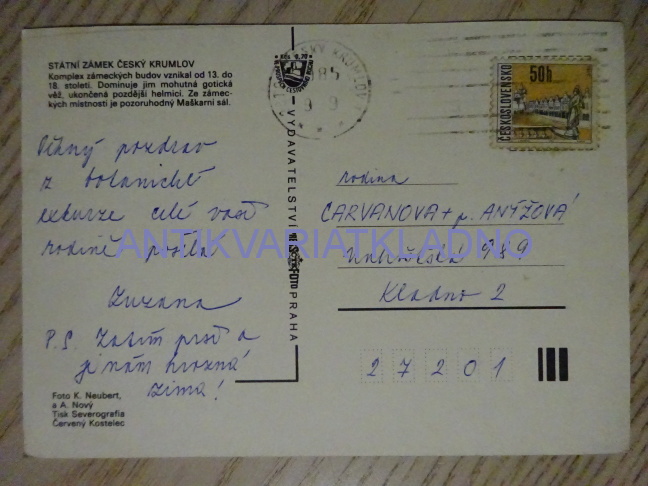 STÁTNÍ ZÁMEK ČESKÝ KRUMLOV
Komplex zámeckých budov vznikal od 13. do
18. století. Dominuje jim mohutná gotická
věž, ukončená pozdější helmicí. Ze zámec-
kých místností je pozoruhodný Maškarní sál.
Pěkný pozdrav
z botanické
exkurze celé vaší
rodině posílá
Zuzana
P.S. Zatím prší a
je nám hrozná
zima!
Foto K. Neubert,
a A. Nový
Tisk Severografia
Červený Kostelec
VYDAVATELSTVÍ
PRAHA
ČESKÝ KRUMLOV
85
9 9
50h
ČESKOSLOVENSKO
rodina
CARVANOVA + p. ANÝŽOVÁ
989
Kladno 2
27201
ANTIKVARIATKLADNO